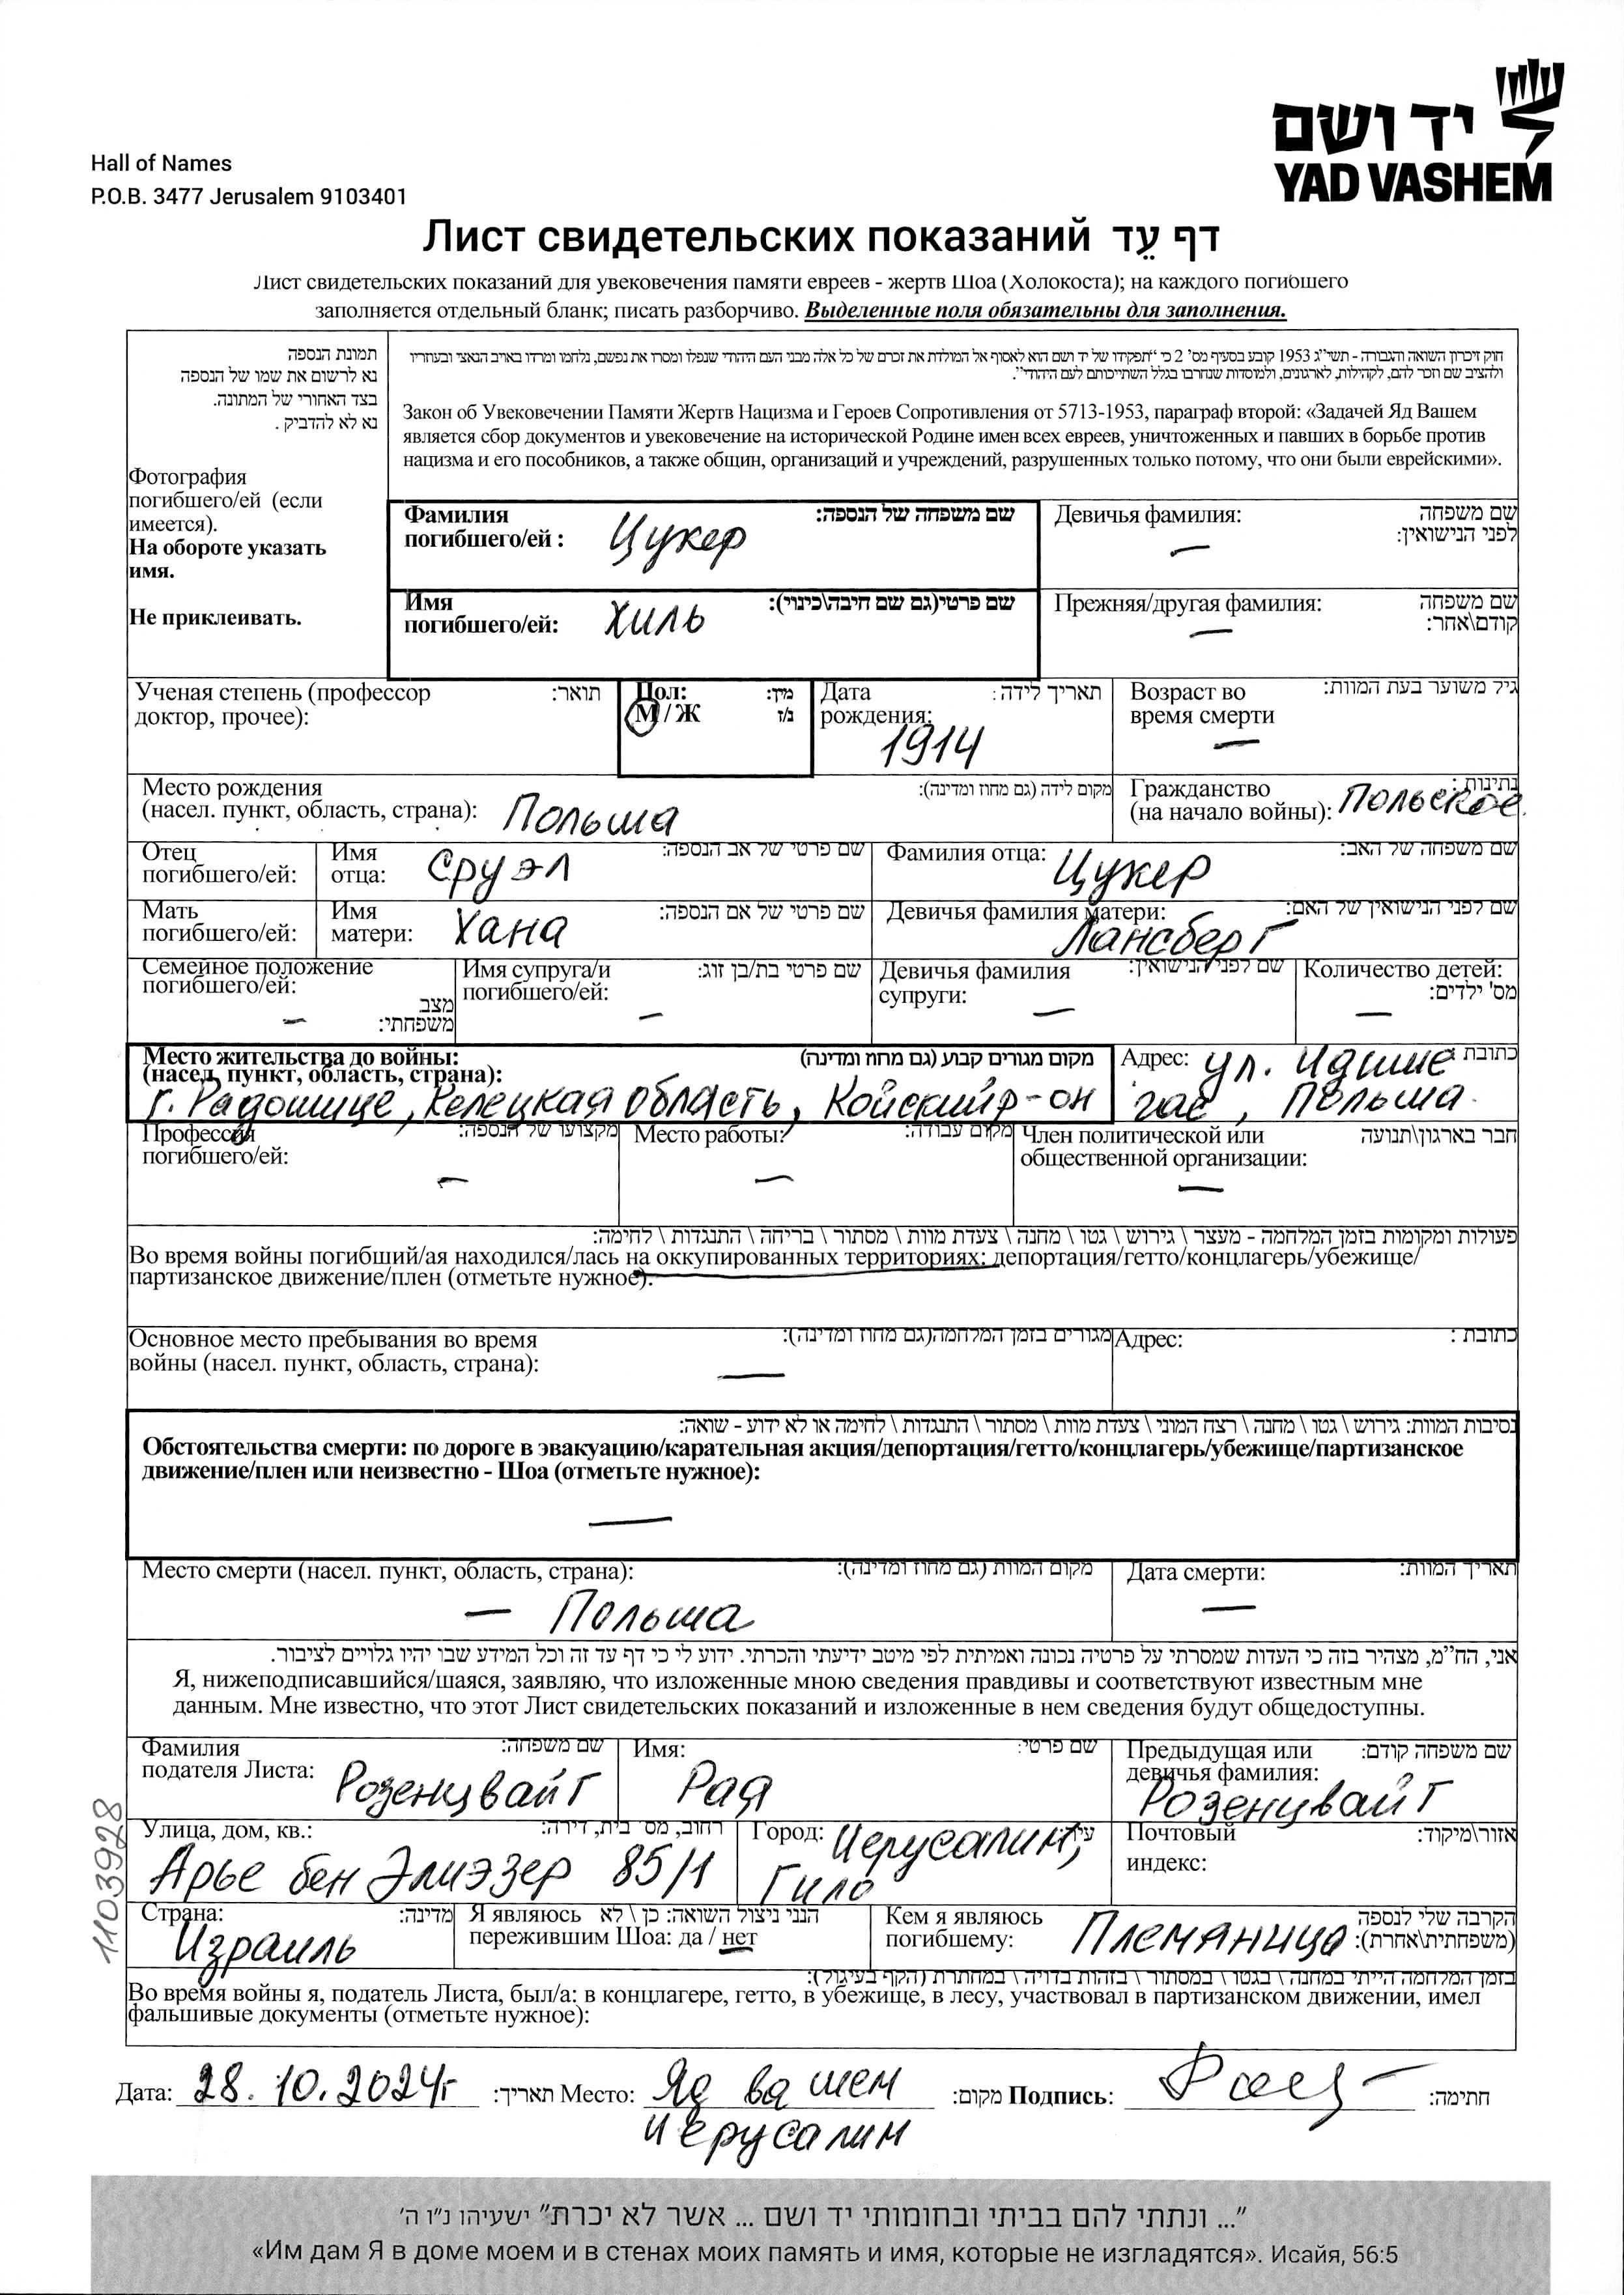 יד ושם
YAD VASHEM
Hall of Names
P.O.B. 3477 Jerusalem 9103401
Лист свидетельских показаний דף עֵד
Лист свидетельских показаний для увековечения памяти евреев - жертв Шоа (Холокоста); на каждого погибшего
заполняется отдельный бланк; писать разборчиво. Выделенные поля обязательны для заполнения.
תמונת הנספה
נא לרשום את שמו של הנספה
בצד האחורי של המתונה.
נא לא להדביק .
Фотография
погибшего/ей (если
имеется).
На обороте указать
имя.
Не приклеивать.
חוק זיכרון השואה והגבורה - תשי"ג 1953 קובע בסעיף מס' 2 כי "תפקידו של יד ושם הוא לאסוף אל המולדת את זכרם של כל אלה מבני העם היהודי שנפלו ומסרו את נפשם, נלחמו ומרדו באויב הנאצי ובעוזריו
ולהציב שם וזכר להם, לקהילות, לארגונים, ולמוסדות שנחרבו בגלל השתייכותם לעם היהודי".
Закон об Увековечении Памяти Жертв Нацизма и Героев Сопротивления от 5713-1953, параграф второй: «Задачей Яд Вашем
является сбор документов и увековечение на исторической Родине имен всех евреев, уничтоженных и павших в борьбе против
нацизма и его пособников, а также общин, организаций и учреждений, разрушенных только потому, что они были еврейскими».
Фамилия שם משפחה של הנספה:
погибшего/ей : Цукер
Девичья фамилия: שם משפחה
לפני הנישואין:
—
Имя שם פרטי(גם שם חיבה\כינוי):
погибшего/ей: Хиль
Прежняя/другая фамилия: שם משפחה
קודם\אחר:
—
Ученая степень (профессор תואר:
доктор, прочее):
Пол: מין:
М / Ж ז/נ
Дата תאריך לידה :
рождения:
1914
Возраст во גיל משוער בעת המוות:
время смерти
—
Место рождения מקום לידה (גם מחוז ומדינה):
(насел. пункт, область, страна): Польша
Гражданство נתינות :
(на начало войны): Польское
Отец
погибшего/ей:
Имя שם פרטי של אב הנספה:
отца: Сруэл
Фамилия отца: שם משפחה של האב:
Цукер
Мать
погибшего/ей:
Имя שם פרטי של אם הנספה:
матери: Хана
Девичья фамилия матери: שם לפני הנישואין של האם:
Лансберг
Семейное положение
погибшего/ей:
מצב
משפחתי:
—
Имя супруга/и שם פרטי בת/בן זוג:
погибшего/ей:
—
Девичья фамилия שם לפני הנישואין:
супруги:
—
Количество детей:
מס' ילדים:
—
Место жительства до войны: מקום מגורים קבוע (גם מחוז ומדינה)
(насел. пункт, область, страна):
г. Радошице, Келецкая область, Койский р-он
Адрес: ул. Идише כתובת :
гас, Польша.
Профессия מקצועו של הנספה:
погибшего/ей:
—
Место работы: מקום עבודה:
—
Член политической или חבר בארגון\תנועה
общественной организации:
—
פעולות ומקומות בזמן המלחמה - מעצר \ גירוש \ גטו \ מחנה \ צעדת מוות \ מסתור \ בריחה \ התנגדות \ לחימה:
Во время войны погибший/ая находился/лась на оккупированных территориях: депортация/гетто/концлагерь/убежище/
партизанское движение/плен (отметьте нужное):
Основное место пребывания во время מגורים בזמן המלחמה(גם מחוז ומדינה):
войны (насел. пункт, область, страна):
—
Адрес: כתובת :
נסיבות המוות: גירוש \ גטו \ מחנה \ רצח המוני \ צעדת מוות \ מסתור \ התנגדות \ לחימה או לא ידוע - שואה:
Обстоятельства смерти: по дороге в эвакуацию/карательная акция/депортация/гетто/концлагерь/убежище/партизанское
движение/плен или неизвестно - Шоа (отметьте нужное):
—
Место смерти (насел. пункт, область, страна): מקום המוות (גם מחוז ומדינה):
— Польша
Дата смерти: תאריך המוות:
—
אני, הח"מ, מצהיר בזה כי העדות שמסרתי על פרטיה נכונה ואמיתית לפי מיטב ידיעתי והכרתי. ידוע לי כי דף עד זה וכל המידע שבו יהיו גלויים לציבור.
Я, нижеподписавшийся/шаяся, заявляю, что изложенные мною сведения правдивы и соответствуют известным мне
данным. Мне известно, что этот Лист свидетельских показаний и изложенные в нем сведения будут общедоступны.
Фамилия שם משפחה:
подателя Листа: Розенцвайг
Имя: שם פרטי:
Рая
Предыдущая или שם משפחה קודם:
девичья фамилия:
Розенцвайг
Улица, дом, кв.: רחוב, מס' בית, דירה:
Арье бен Элиэзер 85/1
Город: Иерусалим, עיר:
Гило
Почтовый אזור\מיקוד:
индекс:
Страна: מדינה:
Израиль
Я являюсь הנני ניצול השואה: כן \ לא
пережившим Шоа: да / нет
Кем я являюсь הקרבה שלי לנספה
погибшему: Племяница (משפחתית\אחרת):
בזמן המלחמה הייתי במחנה \ בגטו \ במסתור \ בזהות בדויה \ במחתרת (הקף בעיגול):
Во время войны я, податель Листа, был/а: в концлагере, гетто, в убежище, в лесу, участвовал в партизанском движении, имел
фальшивые документы (отметьте нужное):
Дата: 28.10.2024г תאריך: Место: Яд ва шем מקום: Подпись: חתימה:
Иерусалим
1103928
"... ונתתי להם בביתי ובחומותי יד ושם ... אשר לא יכרת" ישעיהו נ"ו ה'
«Им дам Я в доме моем и в стенах моих память и имя, которые не изгладятся». Исайя, 56:5